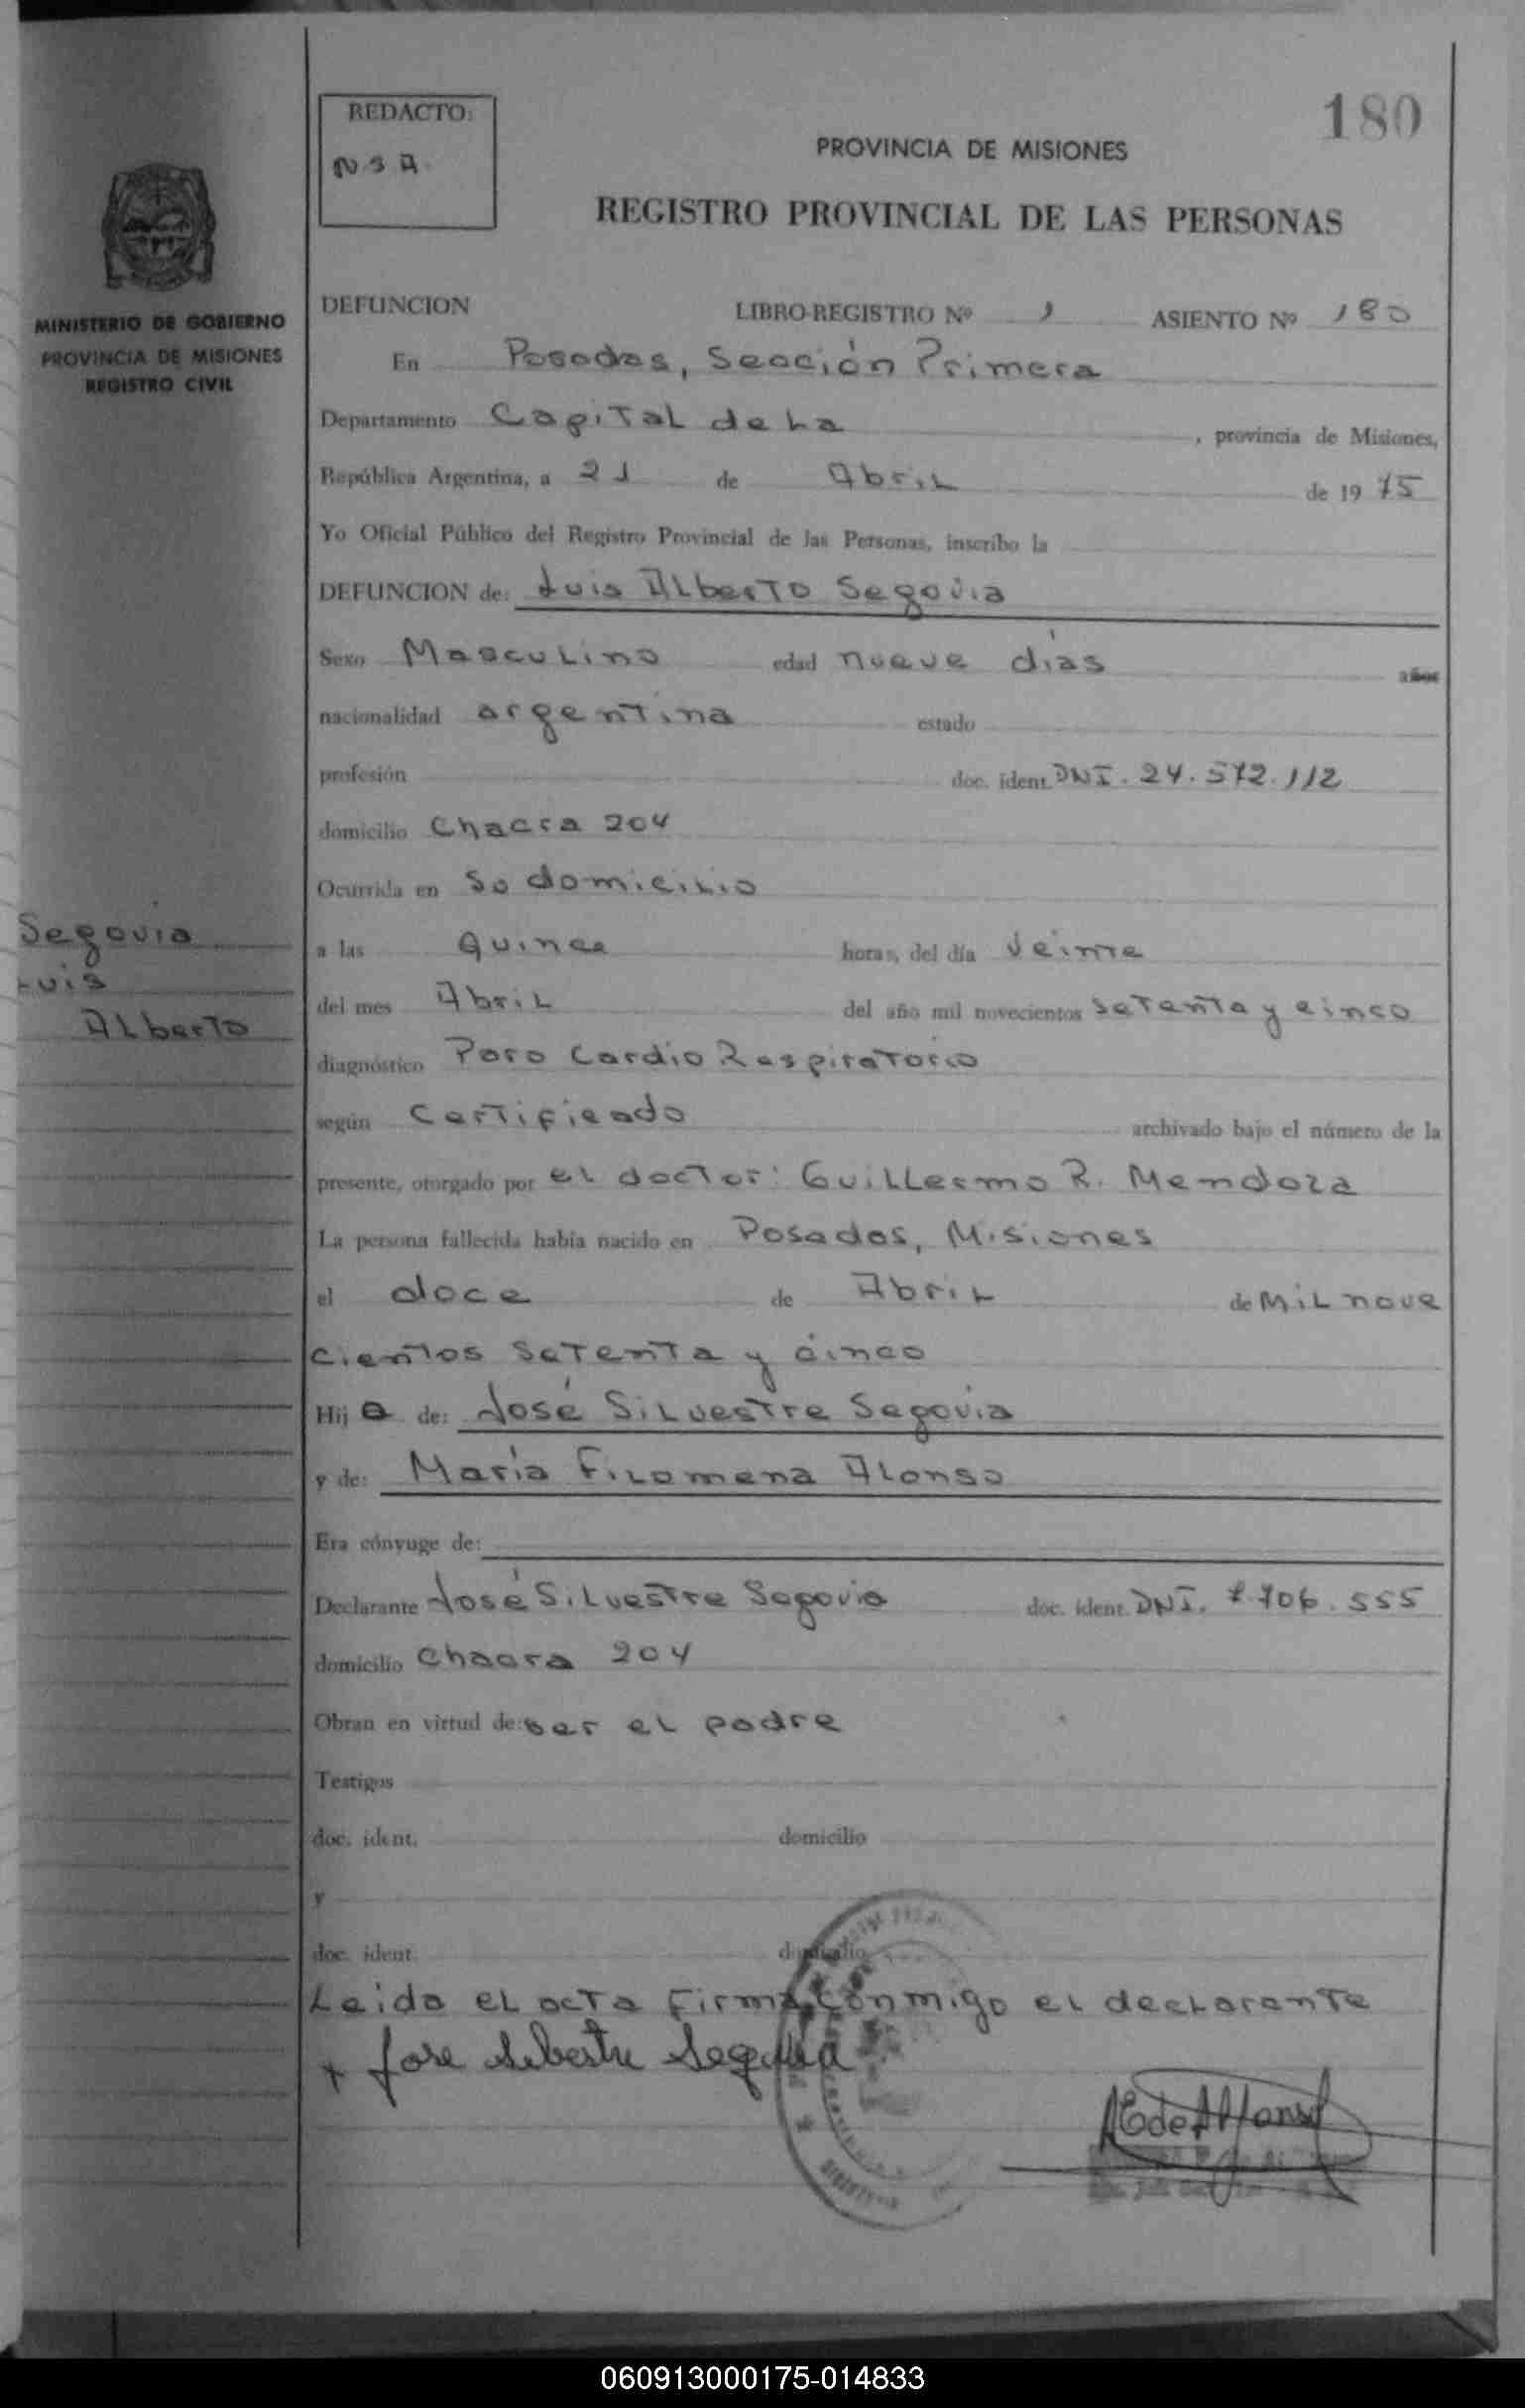 REDACTO:
N.S.A.
180
PROVINCIA DE MISIONES
REGISTRO PROVINCIAL DE LAS PERSONAS
MINISTERIO DE GOBIERNO
PROVINCIA DE MISIONES
REGISTRO CIVIL
DEFUNCION LIBRO-REGISTRO Nº 1 ASIENTO Nº 180
En Posadas, Sección Primera
Departamento Capital de La , provincia de Misiones,
República Argentina, a 21 de Abril de 1975
Yo Oficial Público del Registro Provincial de las Personas, inscribo la
DEFUNCION de: Luis Alberto Segovia
Sexo Masculino edad nueve días años
nacionalidad argentina estado
profesión doc. ident. DNI. 24.572.112
domicilio Chacra 204
Ocurrida en su domicilio
Segovia
Luis
Alberto
a las Quince horas, del día Veinte
del mes Abril del año mil novecientos setenta y cinco
diagnóstico Paro Cardio Respiratorio
según Certificado archivado bajo el número de la
presente, otorgado por el doctor: Guillermo R. Mendoza
La persona fallecida había nacido en Posadas, Misiones
el doce de Abril de Mil nove
cientos setenta y cinco
Hijo de: José Silvestre Segovia
y de: María Filomena Alonso
Era cónyuge de:
Declarante José Silvestre Segovia doc. ident. DNI. 7.706.555
domicilio Chacra 204
Obran en virtud de: ser el padre
Testigos
doc. ident. domicilio
y
doc. ident. domicilio
Leida el acta firma conmigo el declarante
+ Jose Silbestre Segovia
060913000175-014833